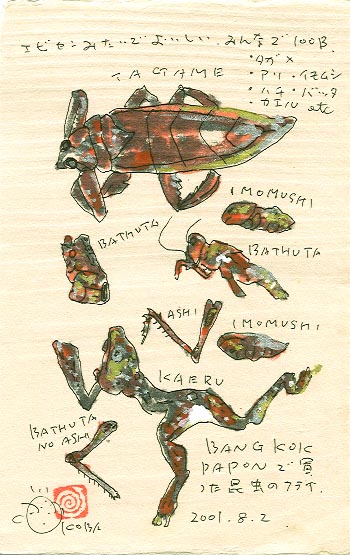 エビセンみたいでおいしい. みんなで100B.
・タガメ
・アリ・イモムシ
・ハチ・バッタ
・カエル etc
TAGAME
IMOMUSHI
BATHUTA
BATHUTA
ASHI
IMOMUSHI
KAERU
BATHUTA
NO ASHI
BANGKOK
PAPONで買
った昆虫のフライ.
2001.8.2